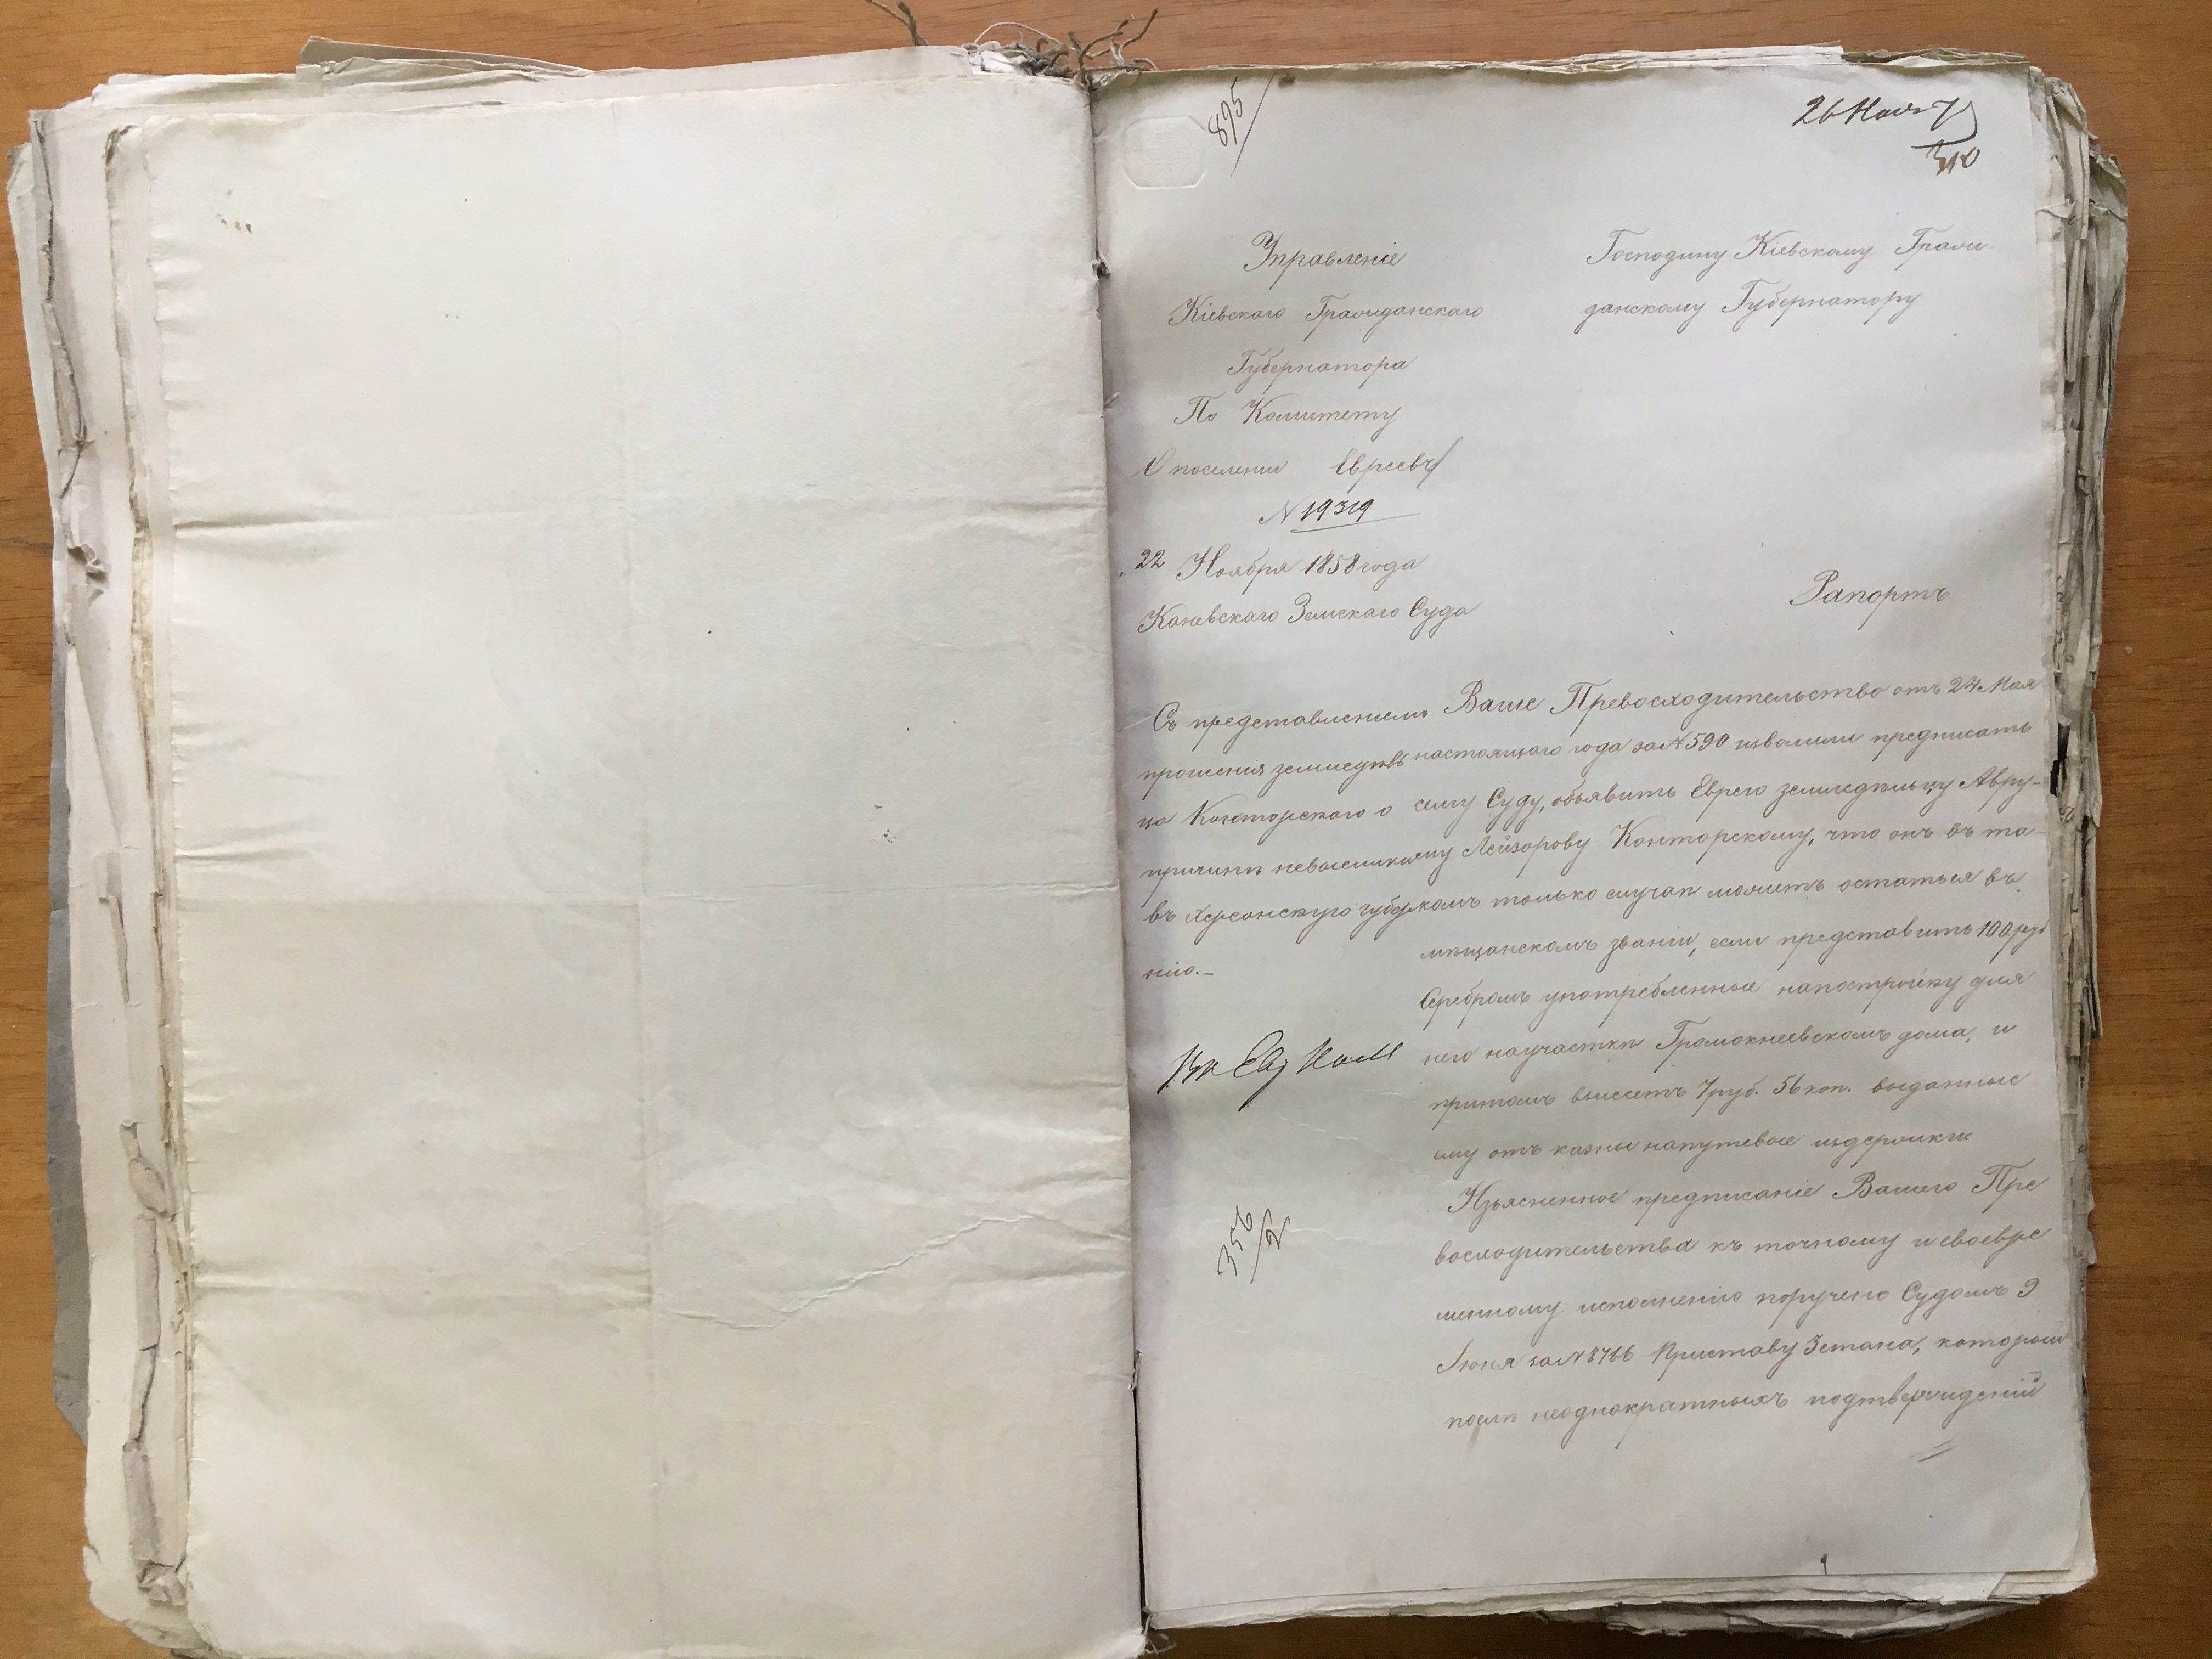 895
26 Нояб
310
Управленіе
Кіевскаго Гражданскаго
Губернатора
По Комитету
О поселеніи Евреевъ
N 19319
22 Ноября 1858 года
Каневскаго Земскаго Суда
Господину Кіевскому Граж-
данскому Губернатору
Рапортъ
Съ представленіемъ
прошенія земледѣль
ца Конторскаго о
причинѣ невысылки
въ Херсонскую губер
нію.-
Ваше Превосходительство отъ 24 Мая
настоящаго года за N 590 изволили предписать
сему Суду, объявить Еврею земледѣльцу Авру-
му Лейзорову Конторскому, что онъ въ та-
комъ только случаѣ можетъ остаться въ
мѣщанскомъ званіи, если представитъ 100 руб
Серебромъ употребленные на постройку для
него на участкѣ Громоклеевскомъ дома, и
притомъ внесетъ 7 руб. 56 коп. выданные
ему отъ казны на путевые издержки
Изъясненное предписаніе Вашего Пре
восходительства къ точному и своевре
менному исполненію поручено Судомъ 9
Іюня за N 8766 Приставу 3 стана, который
послѣ неоднократныхъ подтвержденій
356/2